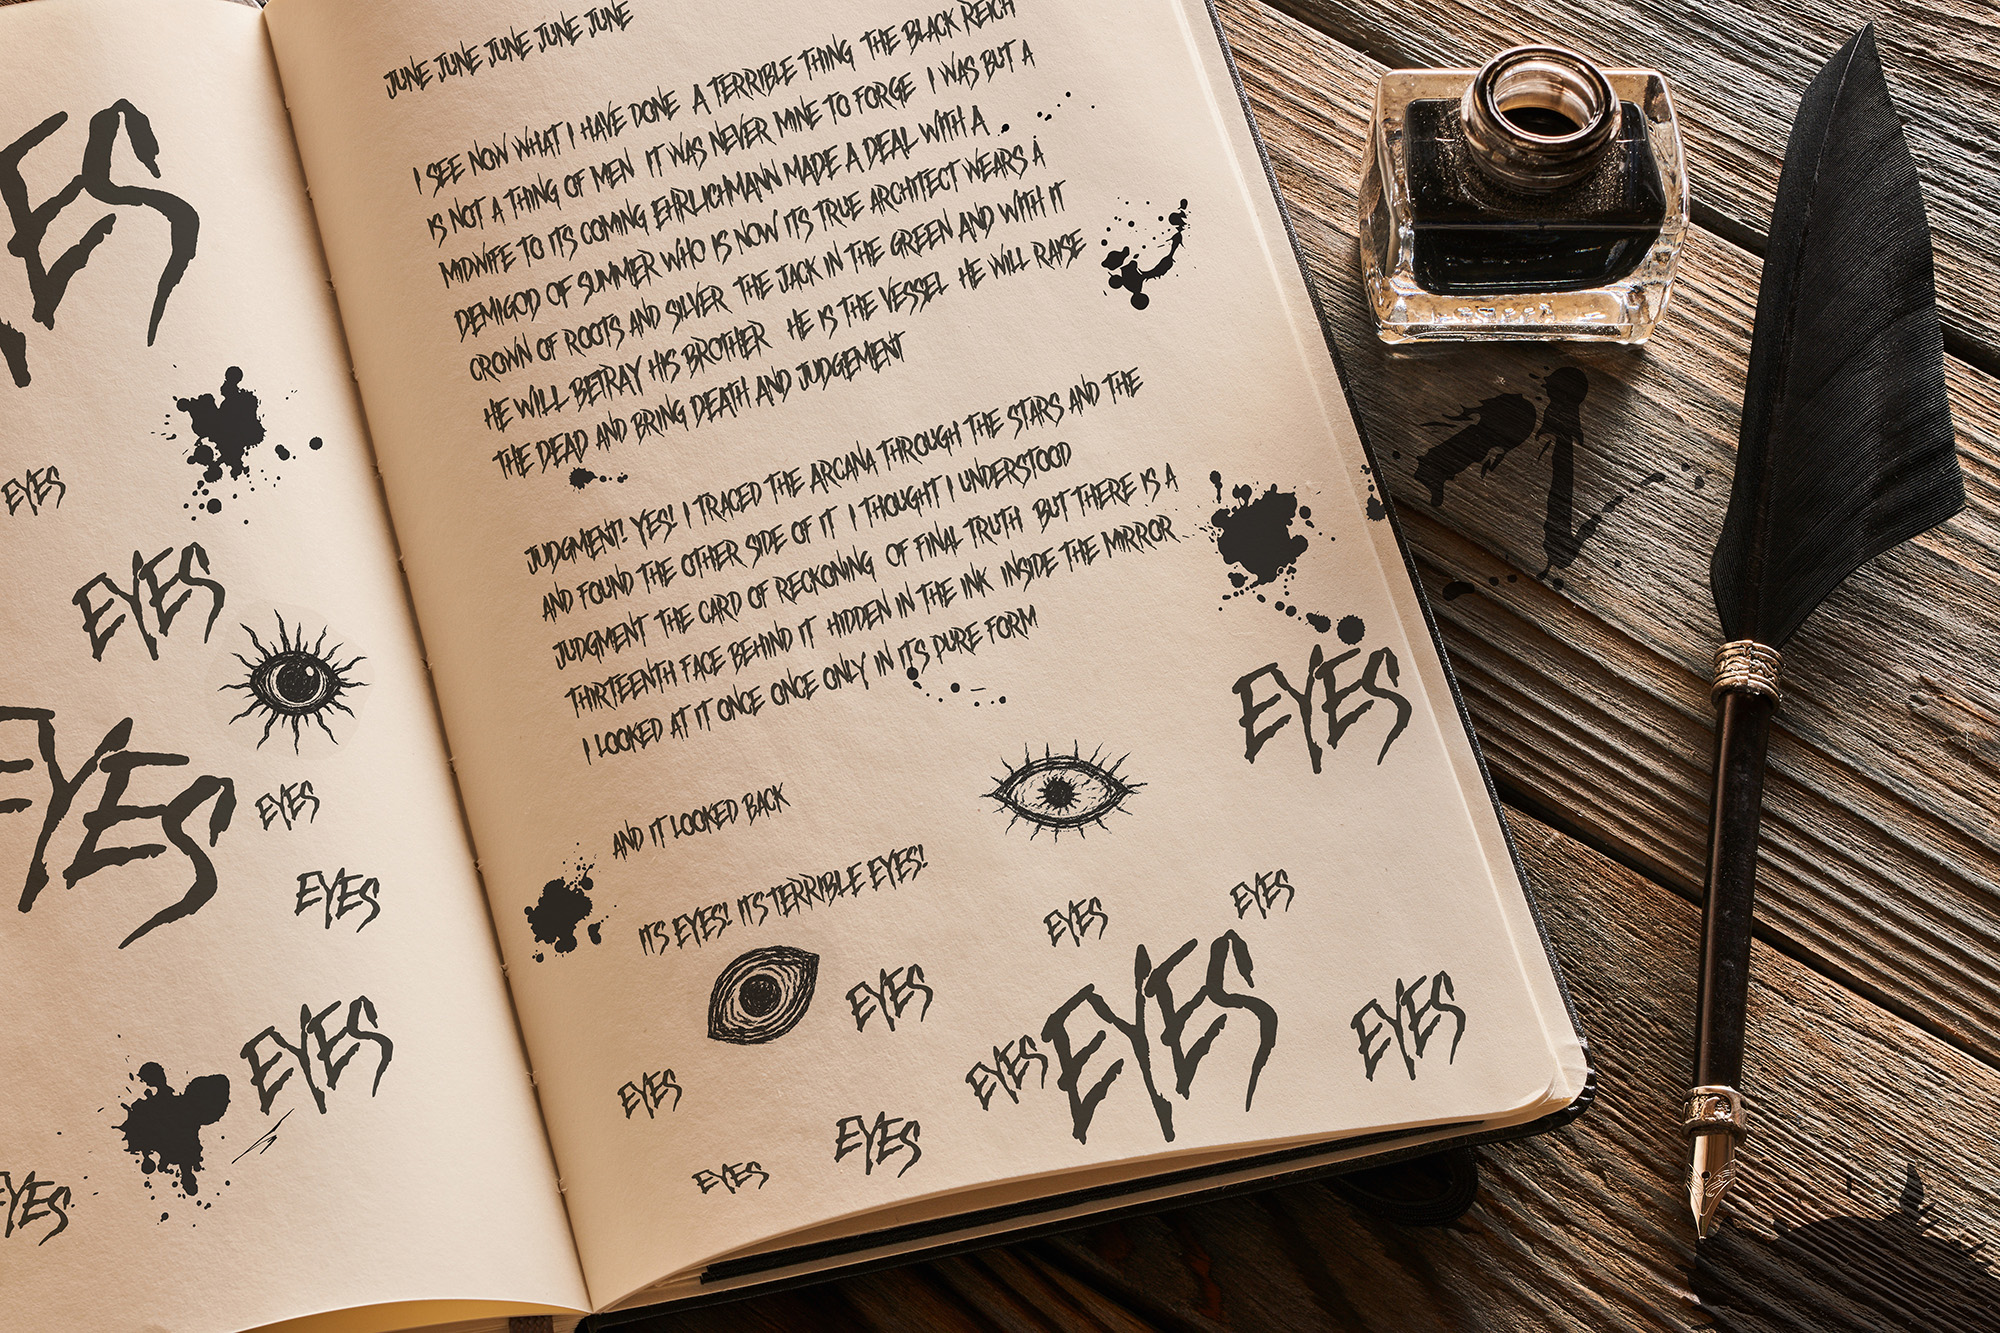 ES
EYES
EYES
EYES
EYES
EYES
EYES
EYES
JUNE JUNE JUNE JUNE JUNE
I SEE NOW WHAT I HAVE DONE A TERRIBLE THING THE BLACK REICH
IS NOT A THING OF MEN IT WAS NEVER MINE TO FORGE I WAS BUT A
MIDWIFE TO ITS COMING EHRLICHMANN MADE A DEAL WITH A
DEMIGOD OF SUMMER WHO IS NOW ITS TRUE ARCHITECT WEARS A
CROWN OF ROOTS AND SILVER THE JACK IN THE GREEN AND WITH IT
HE WILL BETRAY HIS BROTHER HE IS THE VESSEL HE WILL RAISE
THE DEAD AND BRING DEATH AND JUDGEMENT
JUDGMENT! YES! I TRACED THE ARCANA THROUGH THE STARS AND THE
AND FOUND THE OTHER SIDE OF IT I THOUGHT I UNDERSTOOD
JUDGMENT THE CARD OF RECKONING OF FINAL TRUTH BUT THERE IS A
THIRTEENTH FACE BEHIND IT HIDDEN IN THE INK INSIDE THE MIRROR
I LOOKED AT IT ONCE ONCE ONLY IN ITS PURE FORM
EYES
AND IT LOOKED BACK
ITS EYES! ITS TERRIBLE EYES!
EYES
EYES
EYES
EYES
EYES
EYES
EYES
EYES
EYES